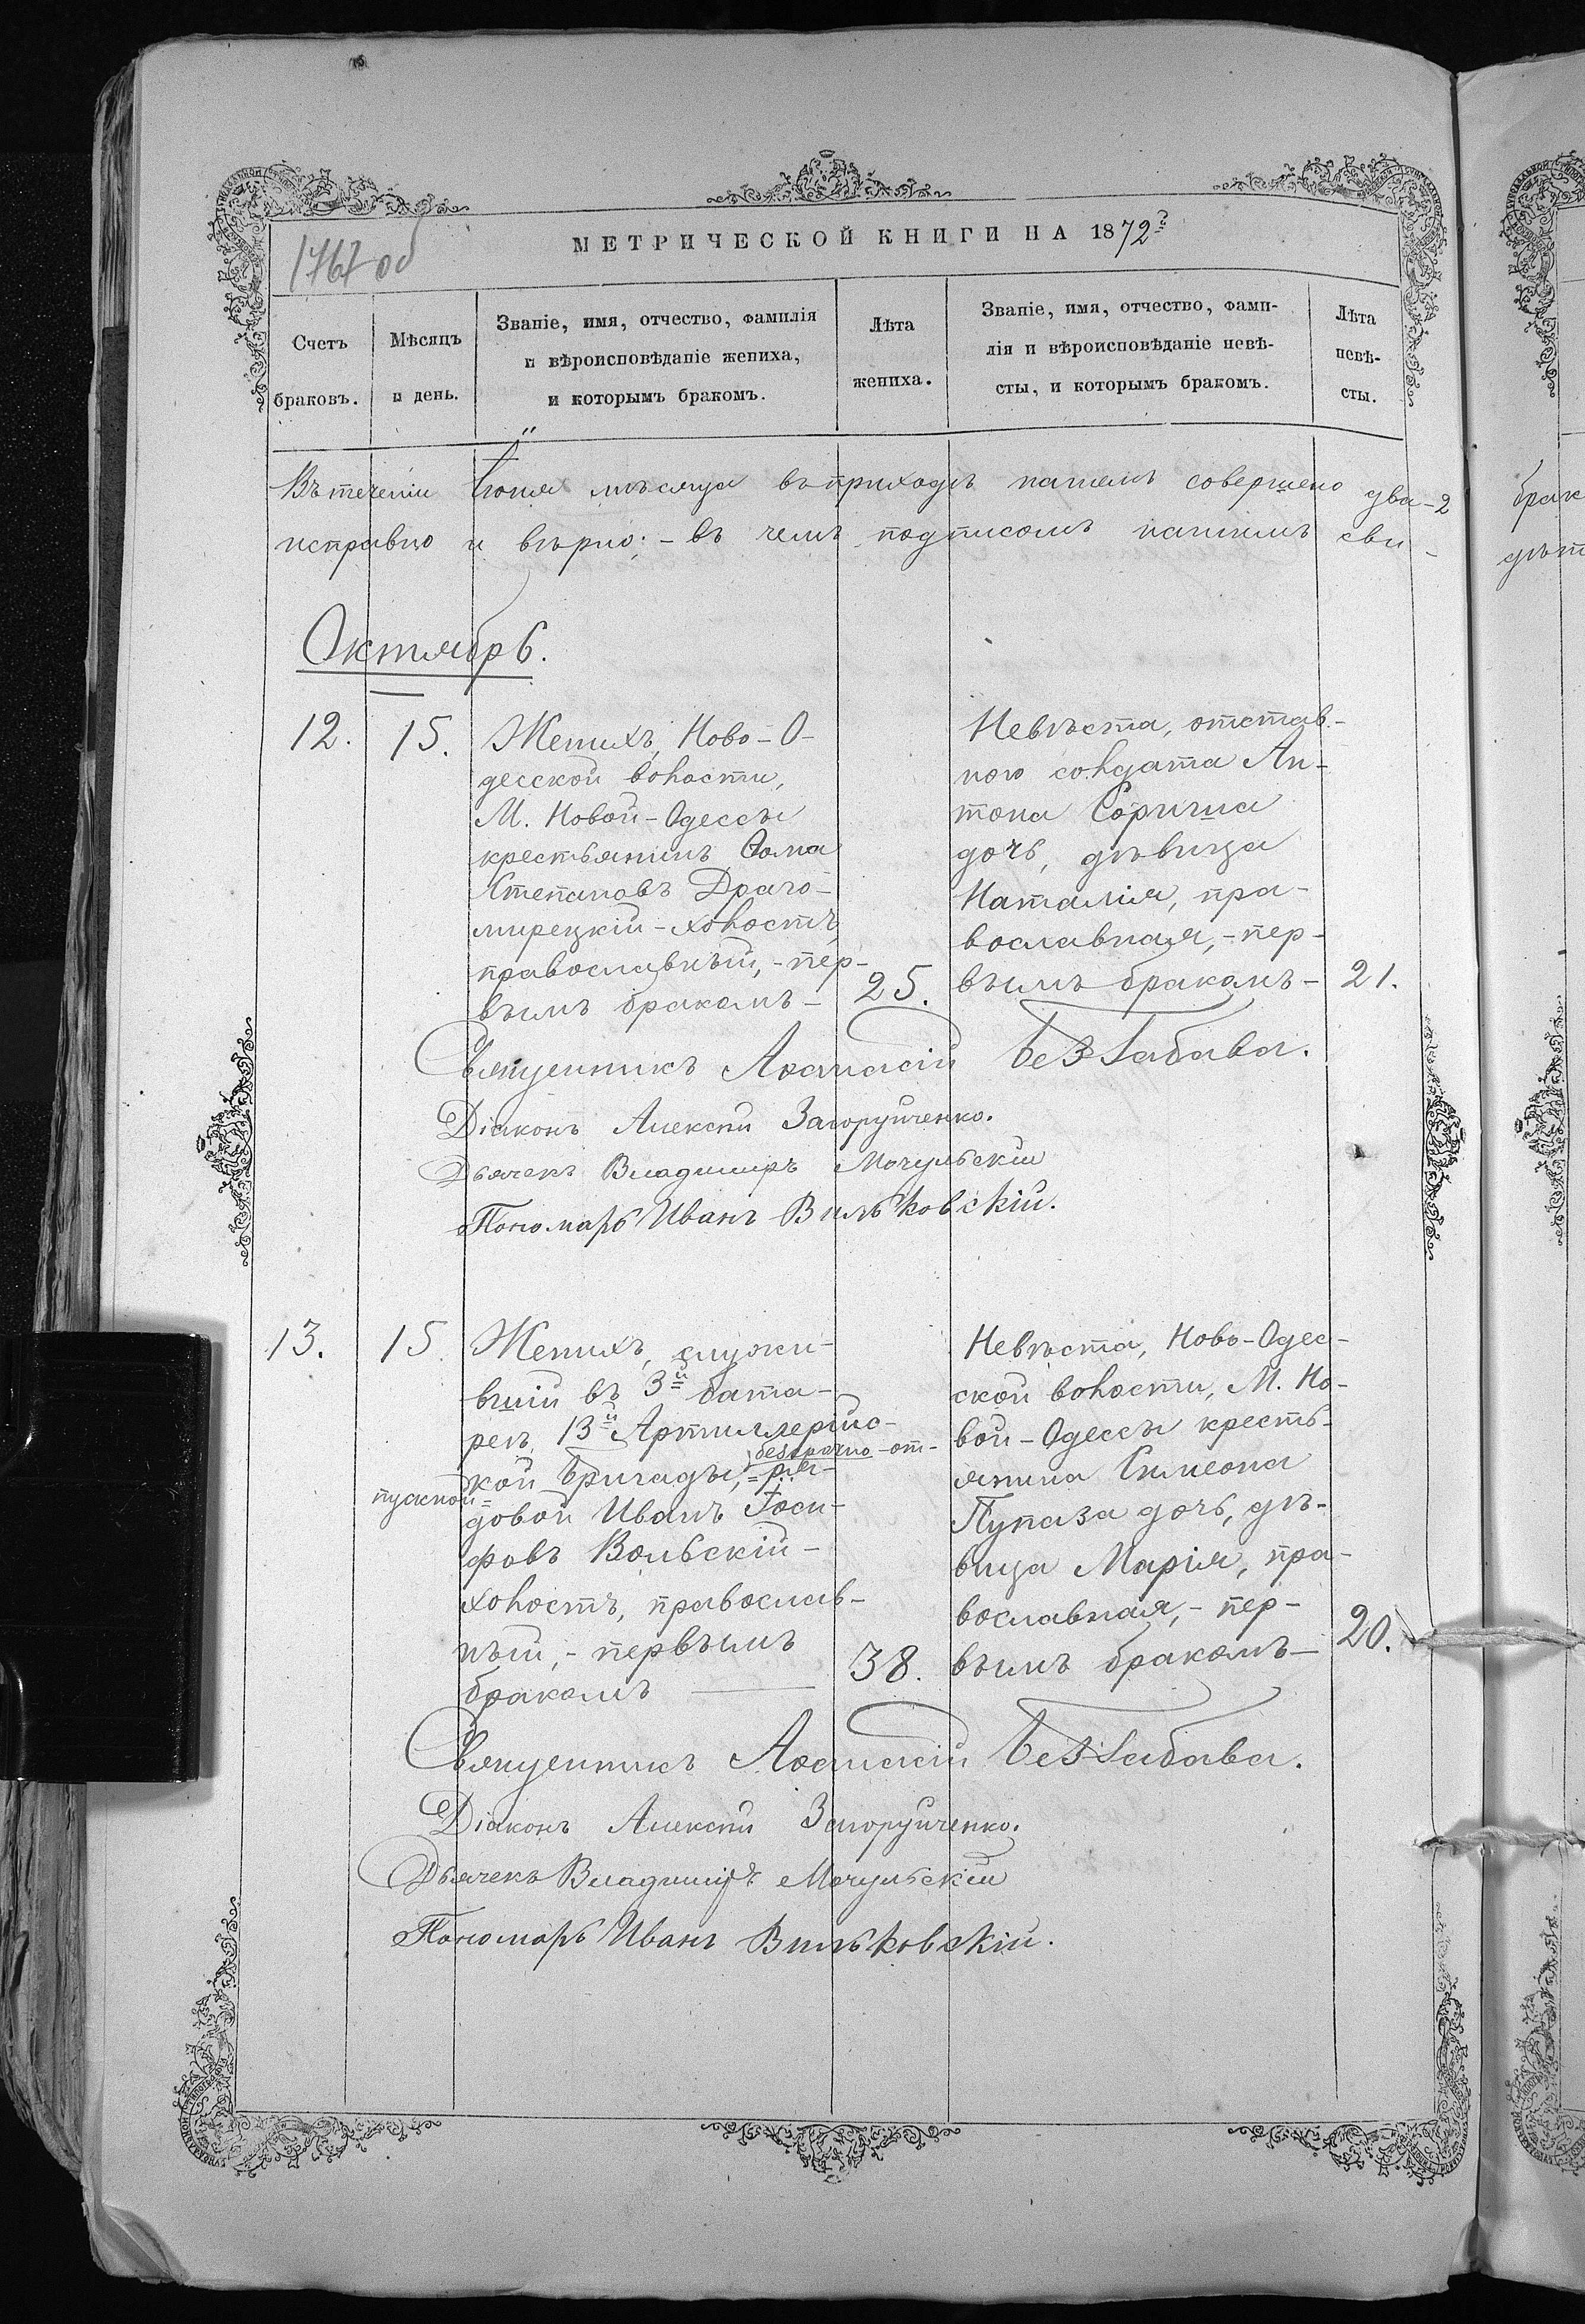 1767 об
МЕТРИЧЕСКОЙ КНИГИ НА 1872й
Счетъ браковъ.
Мѣсяцъ и день.
Званіе, имя, отчество, фамилія
и вѣроисповѣданіе жениха,
и которымъ бракомъ.
Лѣта жениха.
Званіе, имя, отчество, фами-
лія и вѣроисповѣданіе невѣ-
сты, и которымъ бракомъ.
Лѣта невѣ-
сты.
Въ теченіи Іюня мѣсяца въ приходѣ нашемъ совершено два-2
исправно и вѣрно; - въ чемъ подписомъ нашимъ сви-
брак
дѣт
Октябрь.
12. 15.
Женихъ, Ново-О-
десской волости,
М. Новой-Одессы
крестьянинъ Ѳома
Степановъ Драго-
мирецкій - холостъ,
православный, - пер-
вымъ бракомъ -
25.
Невѣста, отстав-
ного солдата Ан-
тона Сорича
дочь, дѣвица
Наталія, пра-
вославная, - пер-
вымъ бракомъ -
21.
Священникъ Аѳанасій Беззабава.
Діаконъ Алексѣй Загоруйченко.
Дьячекъ Владиміръ Мочульскій
Пономарь Иванъ Вильковскій.
13. 15.
Женихъ, служи-
вшій въ 3й бата-
реѣ, 13й Артиллерійс-
кой бригады, безсрочно-от-
пускной= =ря-
довой Иванъ Іоси-
фовъ Вольскій -
холостъ, православ-
ный, - первымъ
бракомъ
38.
Невѣста, Ново-Одес-
ской волости, М. Но-
вой-Одессы кресть-
янина Симеона
Пугаза дочь, дѣ-
вица Марія, пра-
вославная, - пер-
вымъ бракомъ -
20.
Священникъ Аѳанасій Беззабава.
Діаконъ Алексѣй Загоруйченко.
Дьячекъ Владиміръ Мочульскій
Пономарь Иванъ Вильковскій.